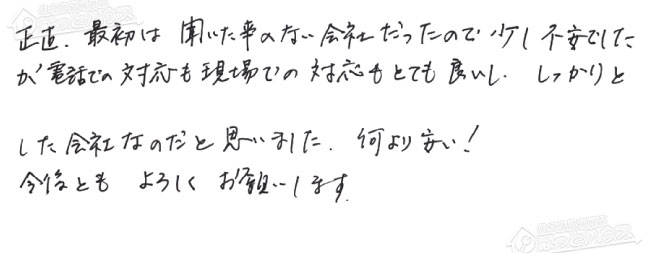 正直、最初は聞いた事のない会社だったので少し不安でした
が電話での対応も現場での対応もとても良いし、しっかりと
した会社なのだと思いました。何より安い！
今後ともよろしくお願いします。